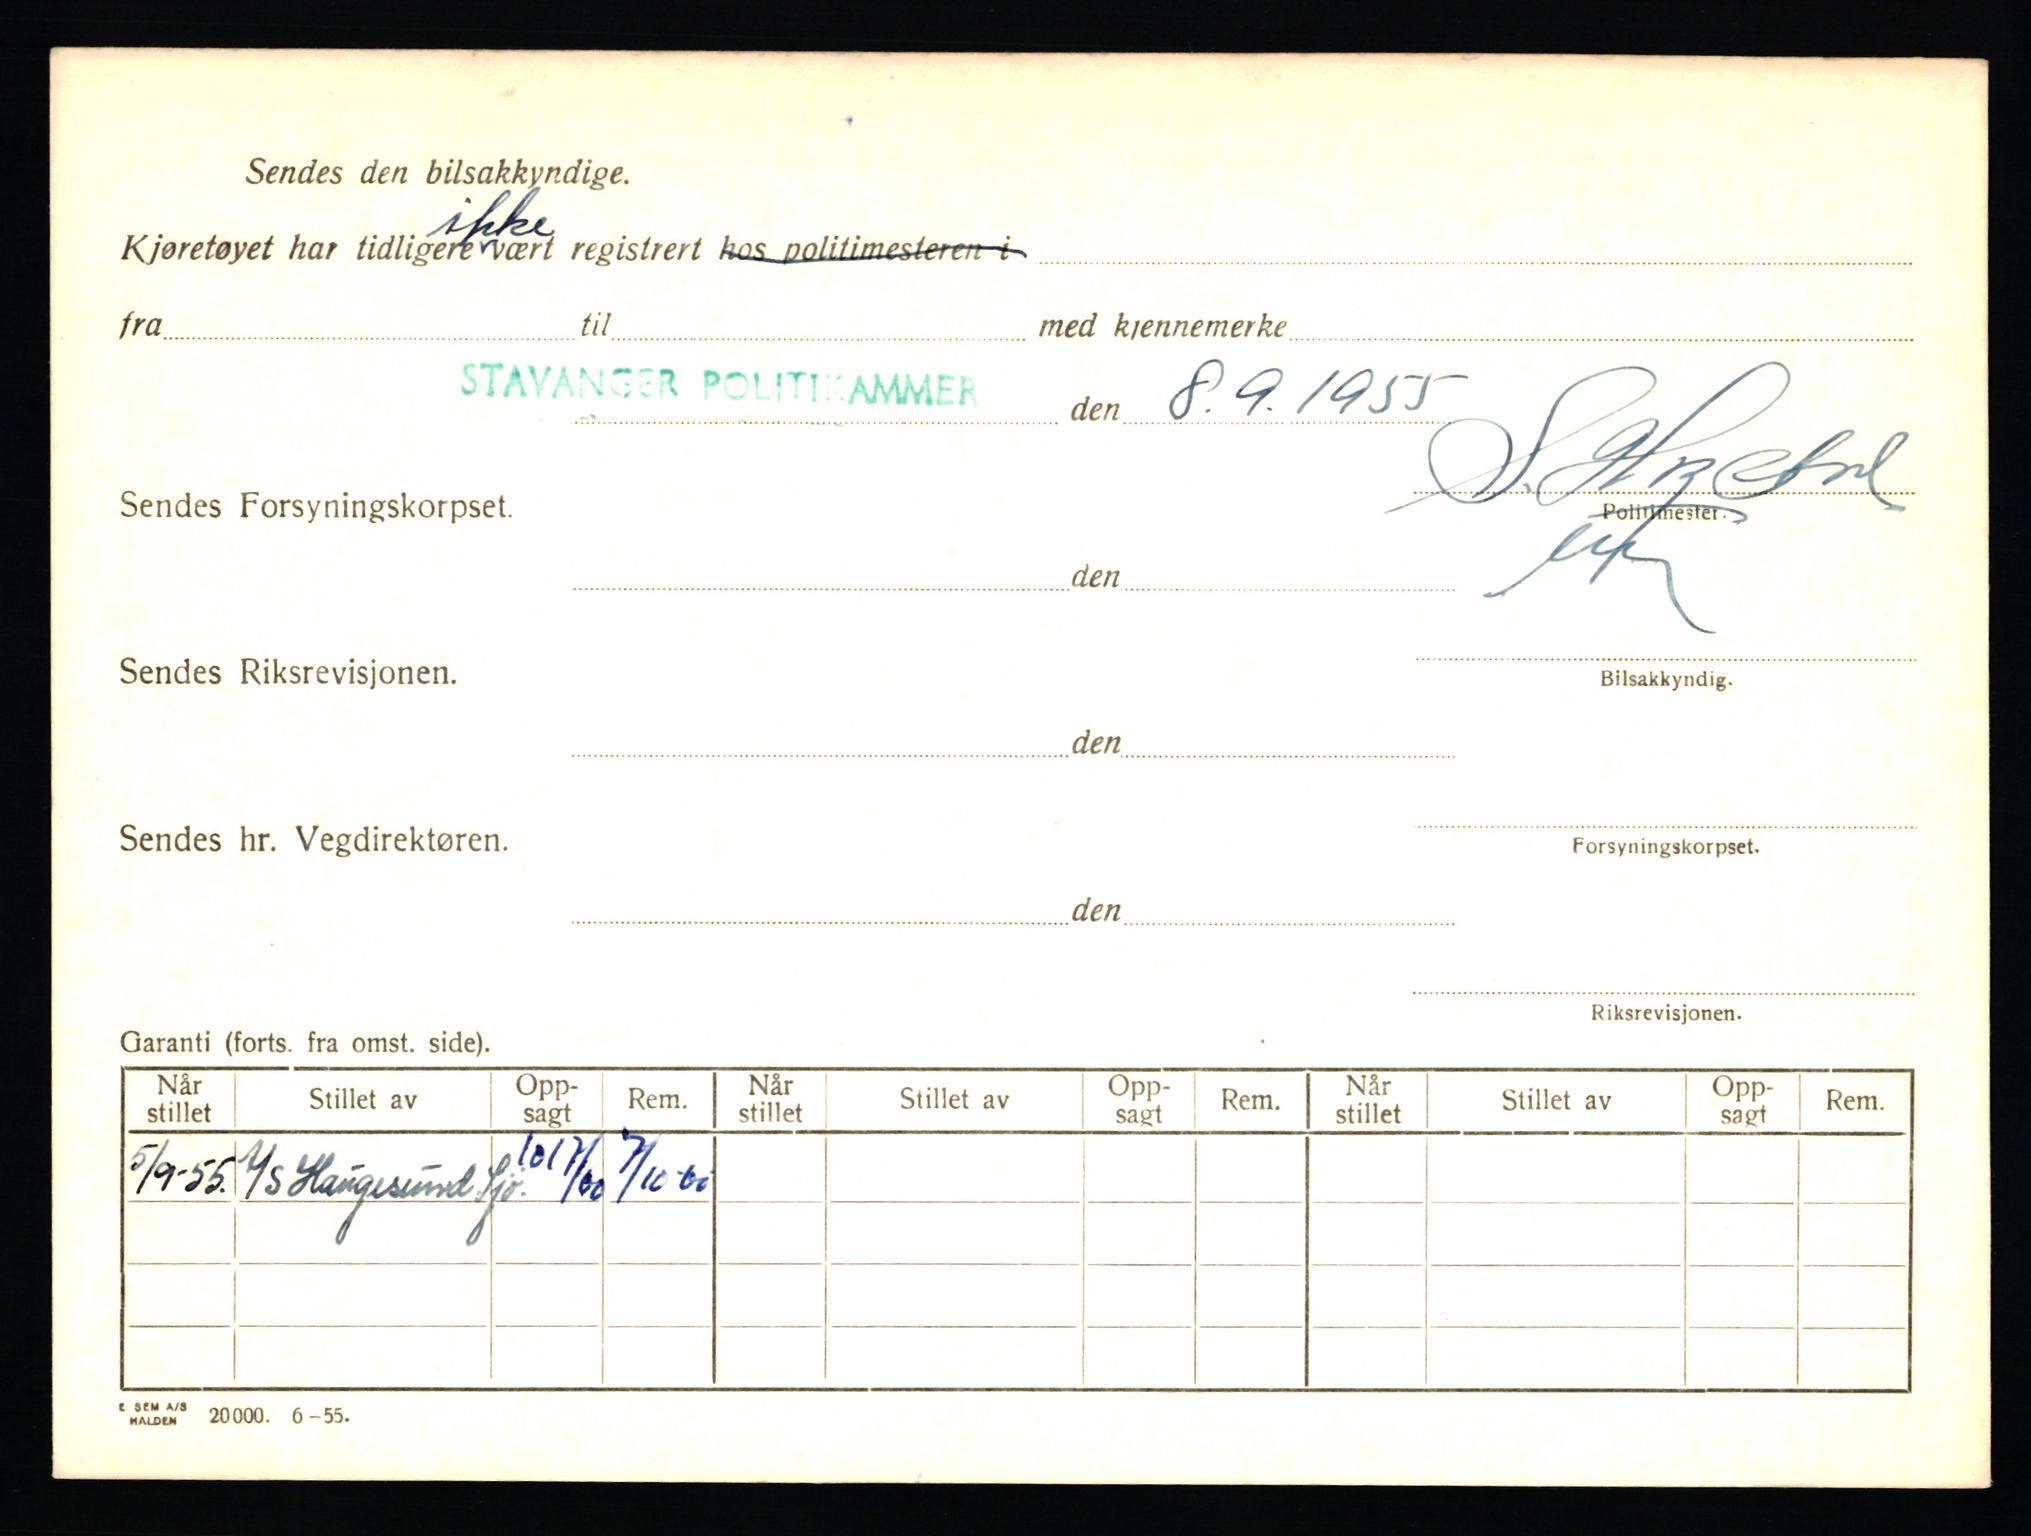 Sendes den bilsakkyndige.
ikke
Kjøretøyet har tidligere vært registrert hos politimesteren i
fra til med kjennemerke
STAVANGER POLITIKAMMER den 8.9.1955
Sendes Forsyningskorpset.
Politimester.
den
Sendes Riksrevisjonen.
Bilsakkyndig.
den
Sendes hr. Vegdirektøren.
Forsyningskorpset.
den
Riksrevisjonen.
Garanti (forts. fra omst. side).
Når stillet Stillet av Opp-sagt Rem. Når stillet Stillet av Opp-sagt Rem. Når stillet Stillet av Opp-sagt Rem.
5/9-55. Haugesund Sjø. 7/10-60
E SEM A/S
HALDEN 20000. 6-55.